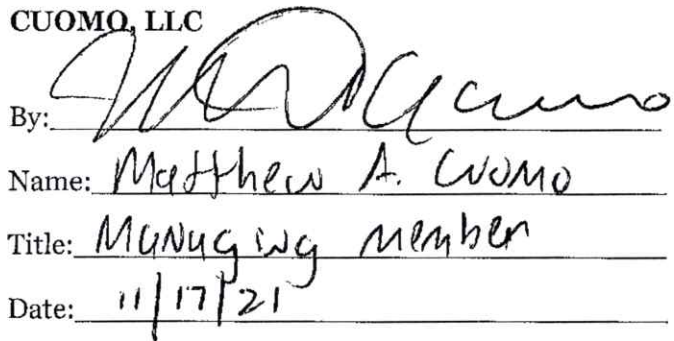 CUOMO, LLC
By:
Name: Matthew A. Cuomo
Title: Managing Member
Date: 11/17/21